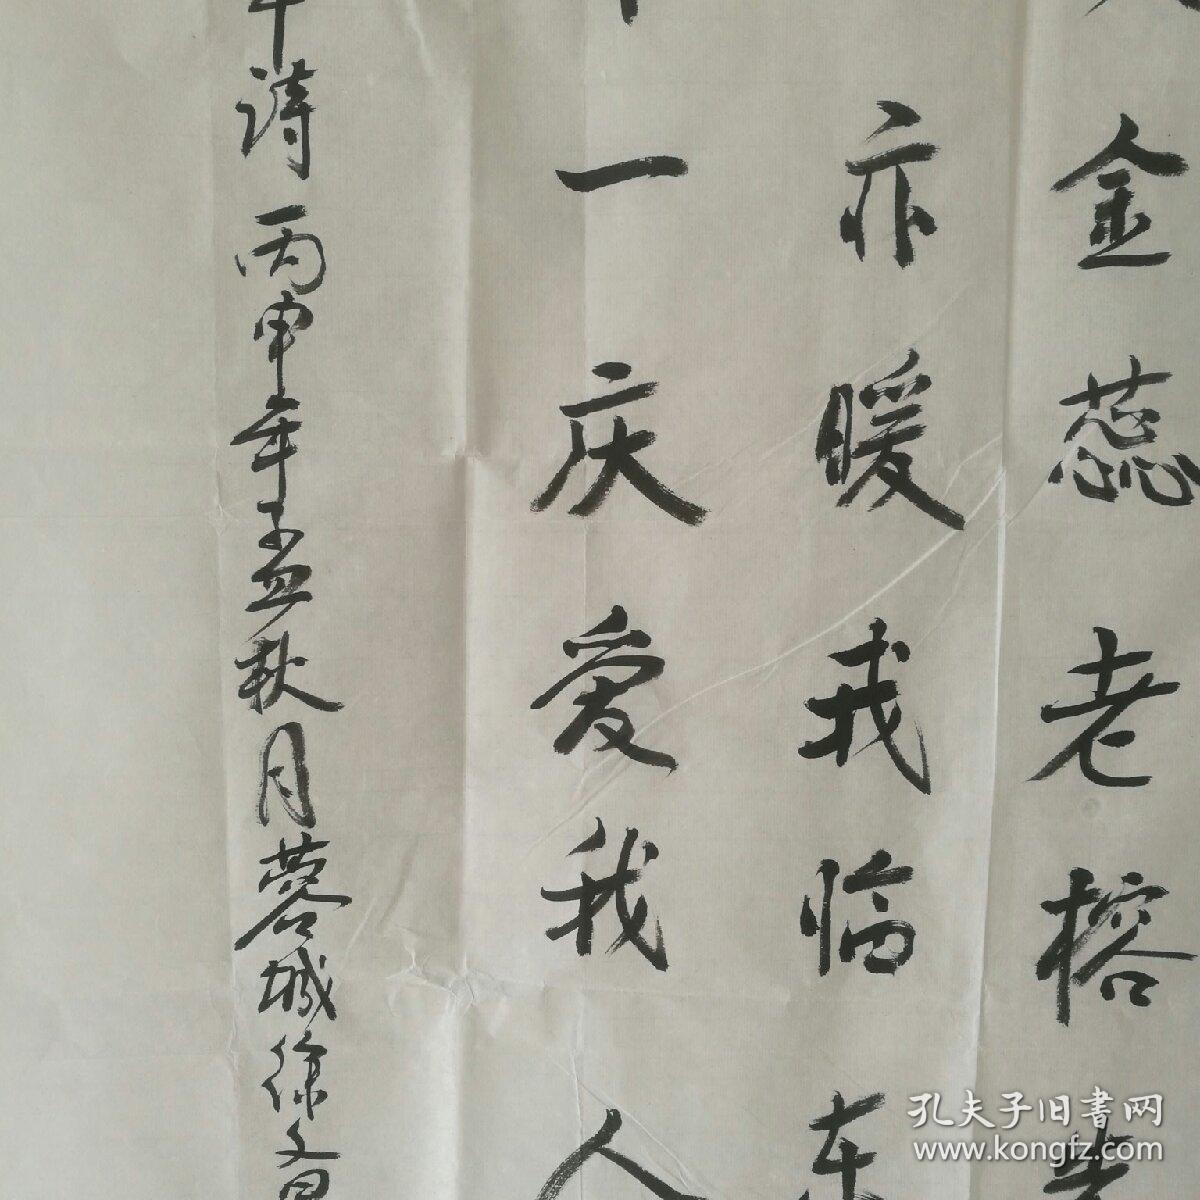 金蕊老榕
亦暖我临东
一庆爱我人
诗丙申年孟秋月蓉城徐文
孔夫子旧書网
www.kongfz.com